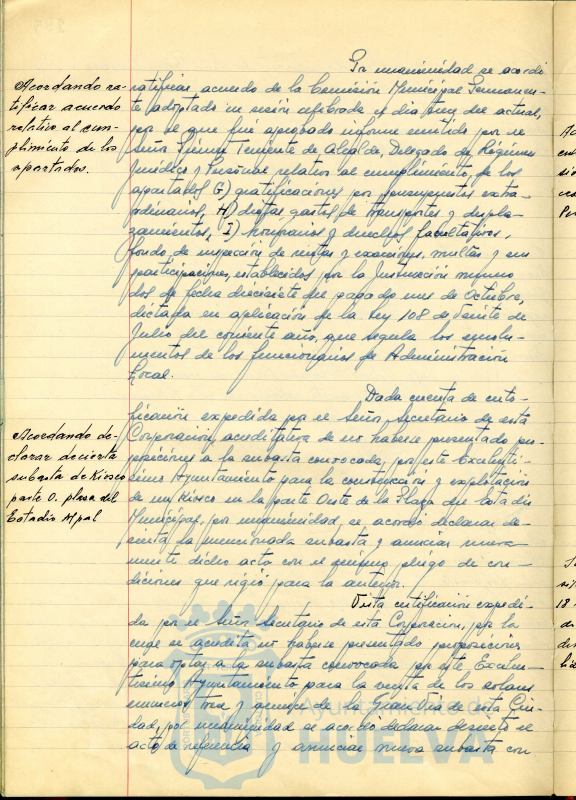 Por unanimidad se acordó
Acordando ra-
tificar acuerdo
relativo al cum-
plimiento de los
apartados.
ratificar acuerdo de la Comisión Municipal Permanen-
te adoptado en sesión celebrada el día del actual,
por el que fué aprobado informe emitido por el
Señor Primer Teniente de Alcalde, Delegado de Régimen
Jurídico y Personal relativo al cumplimiento de los
apartados G) gratificaciones por presupuestos extra-
ordinarios, H) dietas gastos de transportes y despla-
zamientos, I) honorarios y derechos facultativos,
fondo de inspección de rentas y exacciones, multas y sus
participaciones, establecidos por la Instrucción número
dos de fecha diecisiete del pasado mes de Octubre,
dictada en aplicación de la Ley 108 de veinte de
Julio del corriente año, que regula los emolu-
mentos de los funcionarios de Administración
Local.
Dada cuenta de certi-
Acordando de-
clarar desierta
subasta de Kiosco
parte O. plaza del
Estadio Mpal
ficación expedida por el Señor Secretario de esta
Corporación, acreditativa de no haberse presentado pro-
posiciones a la subasta convocada, por este Excelentí-
simo Ayuntamiento para la construcción y explotación
de un Kiosco en la parte Oeste de la Plaza del Estadio
Municipal, por unanimidad, se acordó declarar de-
sierta la mencionada subasta y anunciar nueva
mente dicho acto con el mismo pliego de con-
diciones que rigió para la anterior.
Vista certificación expedi-
da por el Señor Secretario de esta Corporación, por la
que se acredita no haberse presentado proposiciones
para optar a la subasta convocada por este Excelen-
tísimo Ayuntamiento para la venta de los solares
números trece y de la Gran Vía de esta Ciu-
dad, por unanimidad se acordó declarar desierto el
acto de referencia y anunciar nueva subasta con
Ayuntamiento de
HUELVA